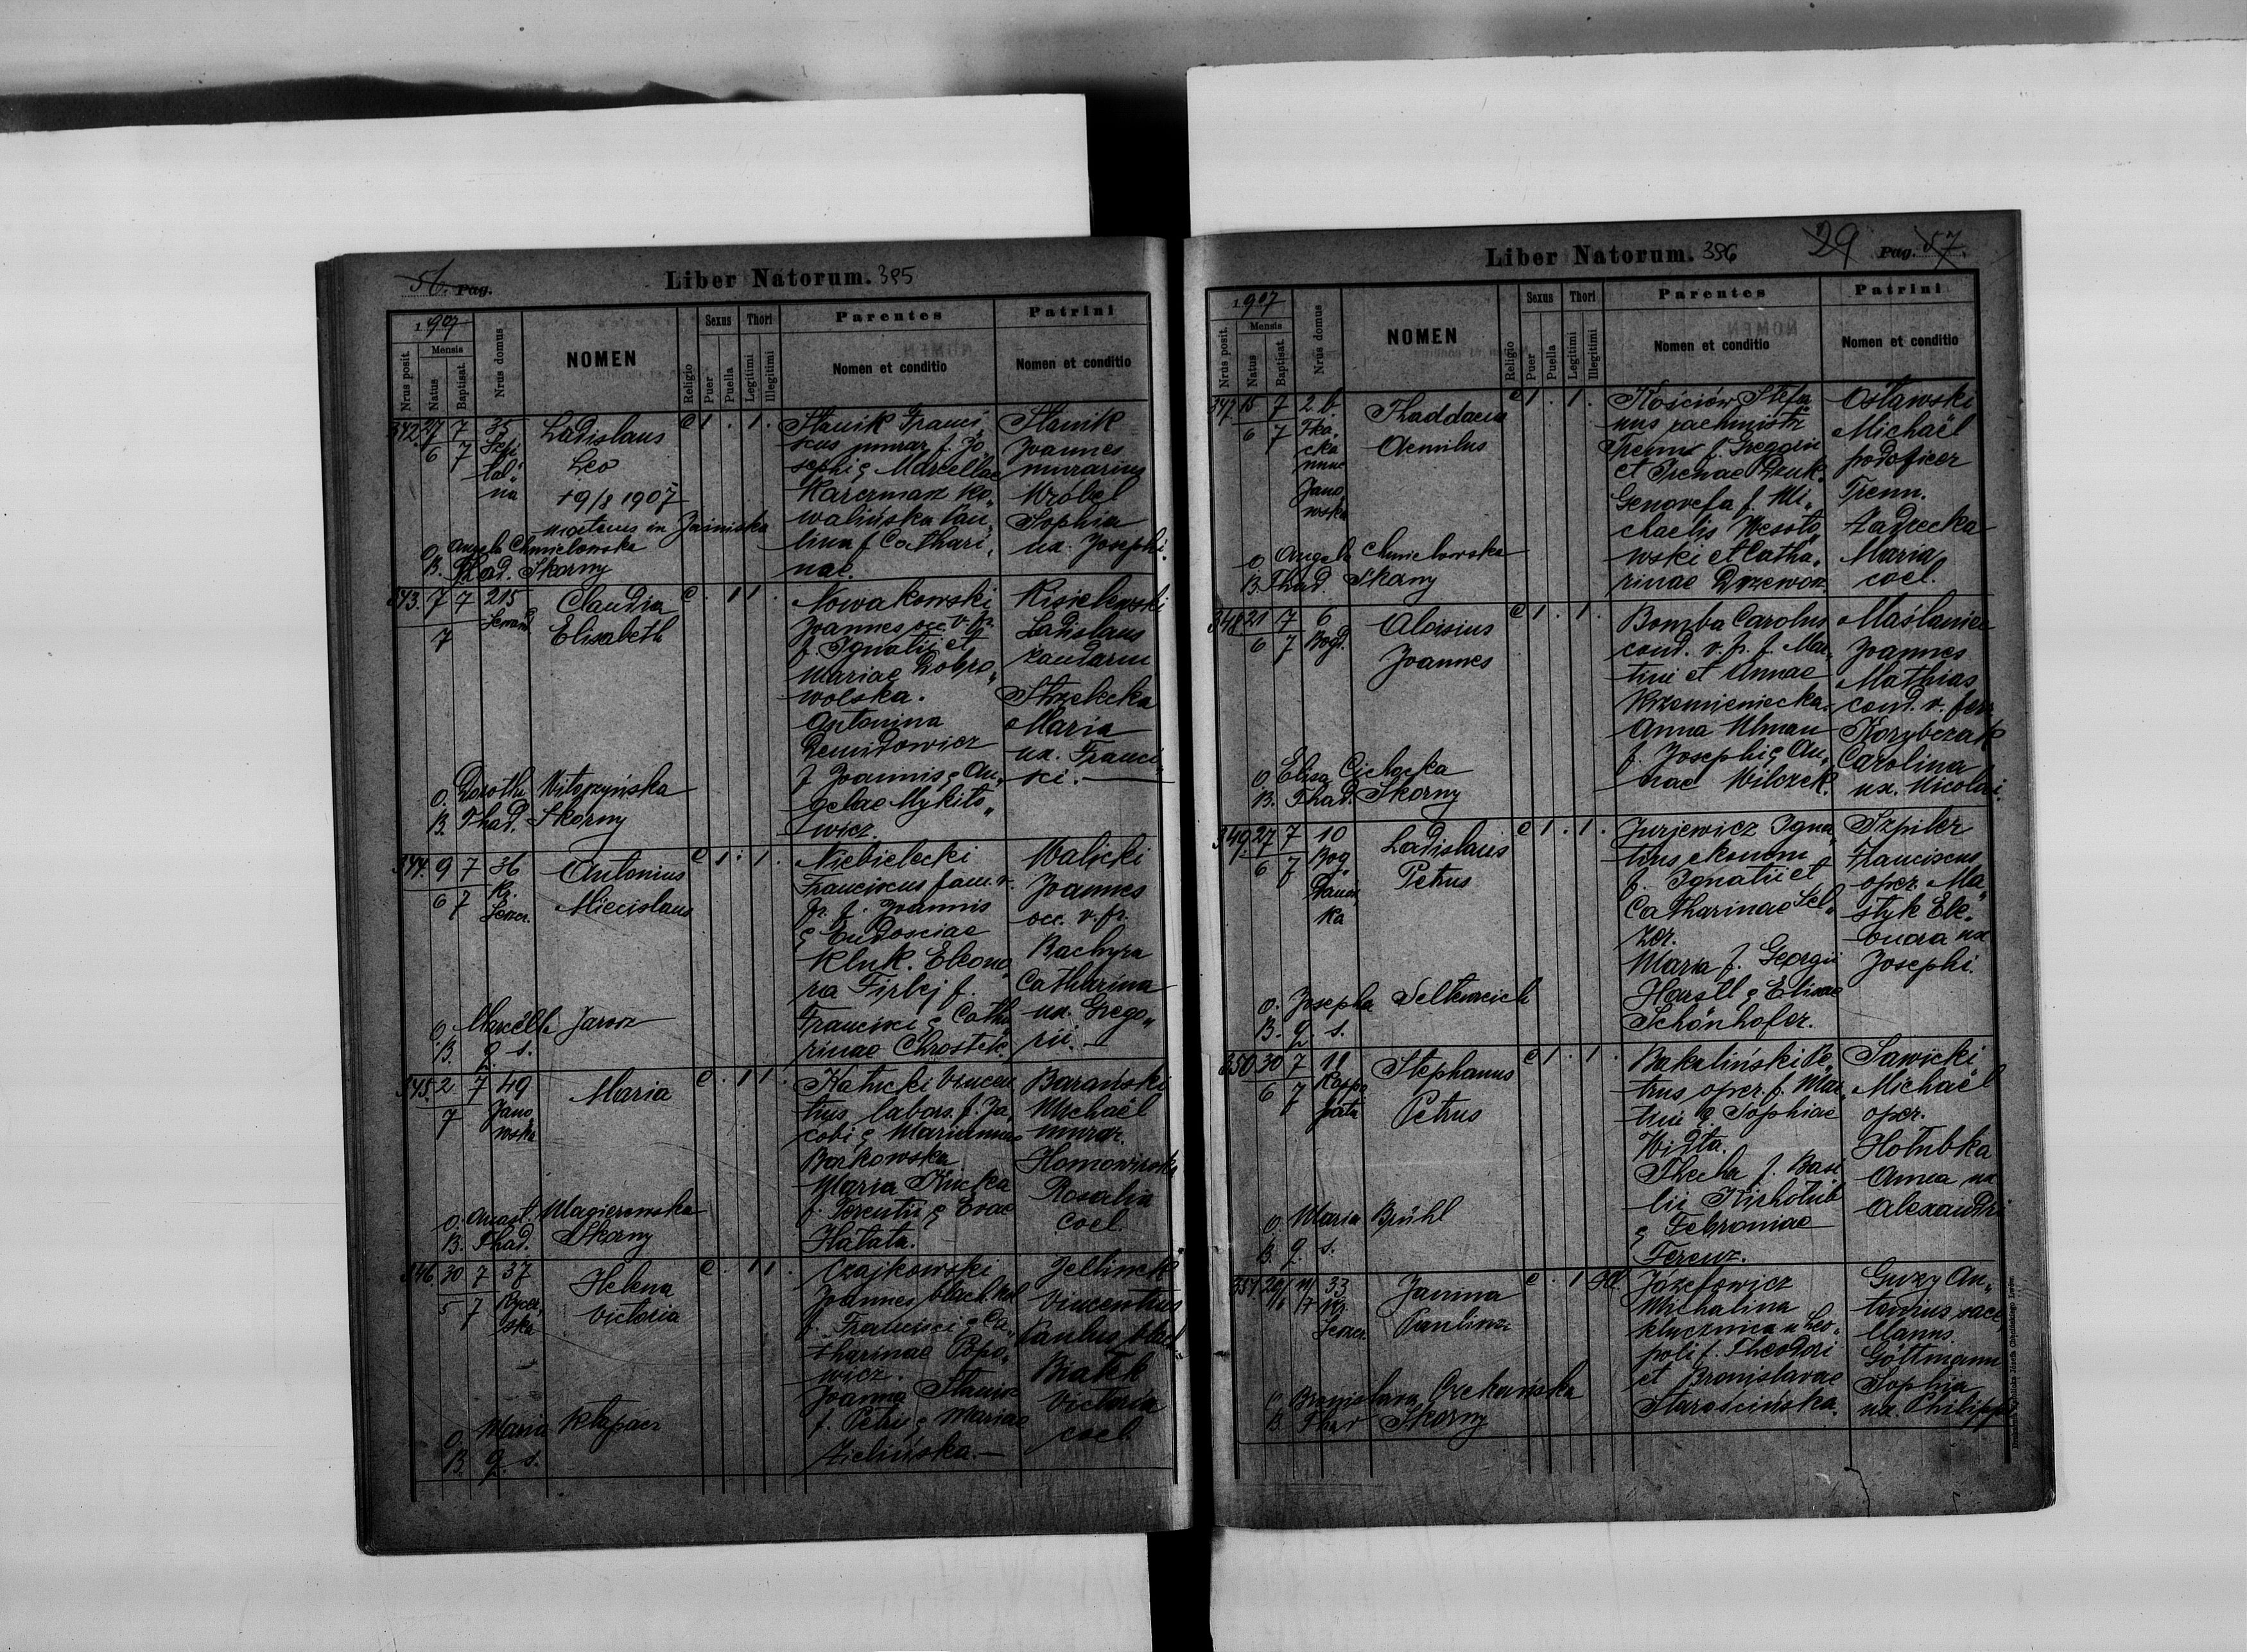 56. Pag.
Liber Natorum. 395
1907
Nrus posit.
Mensis
Natus
Baptisat.
Nrus domus
NOMEN
Religio
Sexus
Puer
Puella
Thori
Legitimi
Illegitimi
Parentes
Nomen et conditio
Patrini
Nomen et conditio
342. 27 7 35
6 7
Ladislaus
Leo
+9/8 1907
O. Angela Chmielowska
B. Thad. Skorny
c 1 . 1 .
Stanik Franci
scus murar. f. Jo
sephi & Marcellae
Karczmarz Ko„
walińska Pau„
lina f. Cathari„
nae.
Stanik
Joannes
murarius
Wróbel
Sophia
ux. Josephi.
343. 7 7 215
7
Claudia
Elisabeth
O. Doroth.
B. Thad. Skorny
c . 1 1 .
Nowakowski
Joannes occ. v. fr.
f. Ignatii et
Mariae Dobro„
wolska.
Antonina
Demidowicz
f. Joannis & An„
gelae Mykito„
wicz.
Kisielewski
Ladislaus
Strzelecka
Maria
ux. Franci„
sci.
344. 9 7 36
6 7 Kr.
Antonius
Miecislaus
O. Marcella Jarosz
B. q. s.
c 1 . 1 .
Niebielecki
Franciscus fam. v.
fr. f. Joannis
& Eudosciae
Kluk. Eleono
ra Firlej f.
Francisci & Catha
rinae Chrostek.
Walicki
Joannes
occ. v. fr.
Bachyra
Catharina
ux. Grego„
rii.
345. 2 7 49
7 Jano
wska
Maria
O. Anast. Magierowska
B. Thad. Skorny
c . 1 1 .
labor. f. Ja„
cobi & Mariannae
Borkowska
Maria
f. Terentii & Evae
Hałata.
Barański
Michaël
murar.
Rosalia
coel.
346. 30 7 37
5 7
Helena
Victoria
O. Maria Kłapacz
B. q. s.
c . 1 1 .
Czajkowski
Joannes
f. Francisci & Ca„
tharinae Popo„
wicz.
Joanna
f. Petri & Mariae
Zielińska.
Jellinek
Vincentius
Paulus
Białek
Victoria
coel.
Liber Natorum. 396
29 Pag. 57.
1907
Nrus posit.
Mensis
Natus
Baptisat.
Nrus domus
NOMEN
Religio
Sexus
Puer
Puella
Thori
Legitimi
Illegitimi
Parentes
Nomen et conditio
Patrini
Nomen et conditio
347 15 7 2 b.
6 7
Jano
wska
Thaddaeus
Aemilus
O. Angela Chmielowska
B. Thad. Skorny
c 1 . 1 .
Kościów Stefa
nus rachmistr
Trenn f. Gregorii
et Irenae
Genovefa f. Mi„
chaelis Wesoło„
wski et Catha„
rinae
Osławski
Michaël
podoficer
Trenn.
Zadzecka
Maria
coel.
348 21 7 6
6 7 Bogd.
Aloisius
Joannes
O. Elisa
B. Thad. Skorny
c 1 . 1 .
Bomba Carolus
cond. v. fr. f. Mar„
tini et Annae
Krzemieniecka.
Anna Ulman
f. Josephi & An„
nae Wilczek.
Maślanica
Joannes
Mathias
cond. v. ferr
Korybczak
Carolina
ux. Nicolai.
349 27 7 10
6 7
Ladislaus
Petrus
O. Josepha Seltenreich
B. q. s.
c 1 . 1 .
Jurjewicz Igna
tius ekonom
f. Ignatii et
Catharinae Sel„
zer.
Maria f. Georgii
Horstl & Elisae
Schönhofer.
Szpiler
Franciscus
oper. Ma„
styk Ele„
onora ux
Josephi.
350 30 7 11
6 7
Stephanus
Petrus
O. Maria Brühl
B. q. s.
c 1 . 1 .
Bakaliński Pe„
trus oper. f. Mar„
tini & Sophiae
Thecla f. Basi
lii
& Febroniae
Ferenz.
Sawicki
Michaël
oper.
Hołubka
Anna ux
Alexandri
351. 33
Janina
Paulina
O. Bronislava
B. Thad Skorny
c . 1
Józefowicz
Michalina
klucznica u Leo„
poli f. Theodori
et Bronislavae
Starościńska.
Guzy An„
tonius sace„
llanus.
Göttmann
Sophia
ux. Philippi